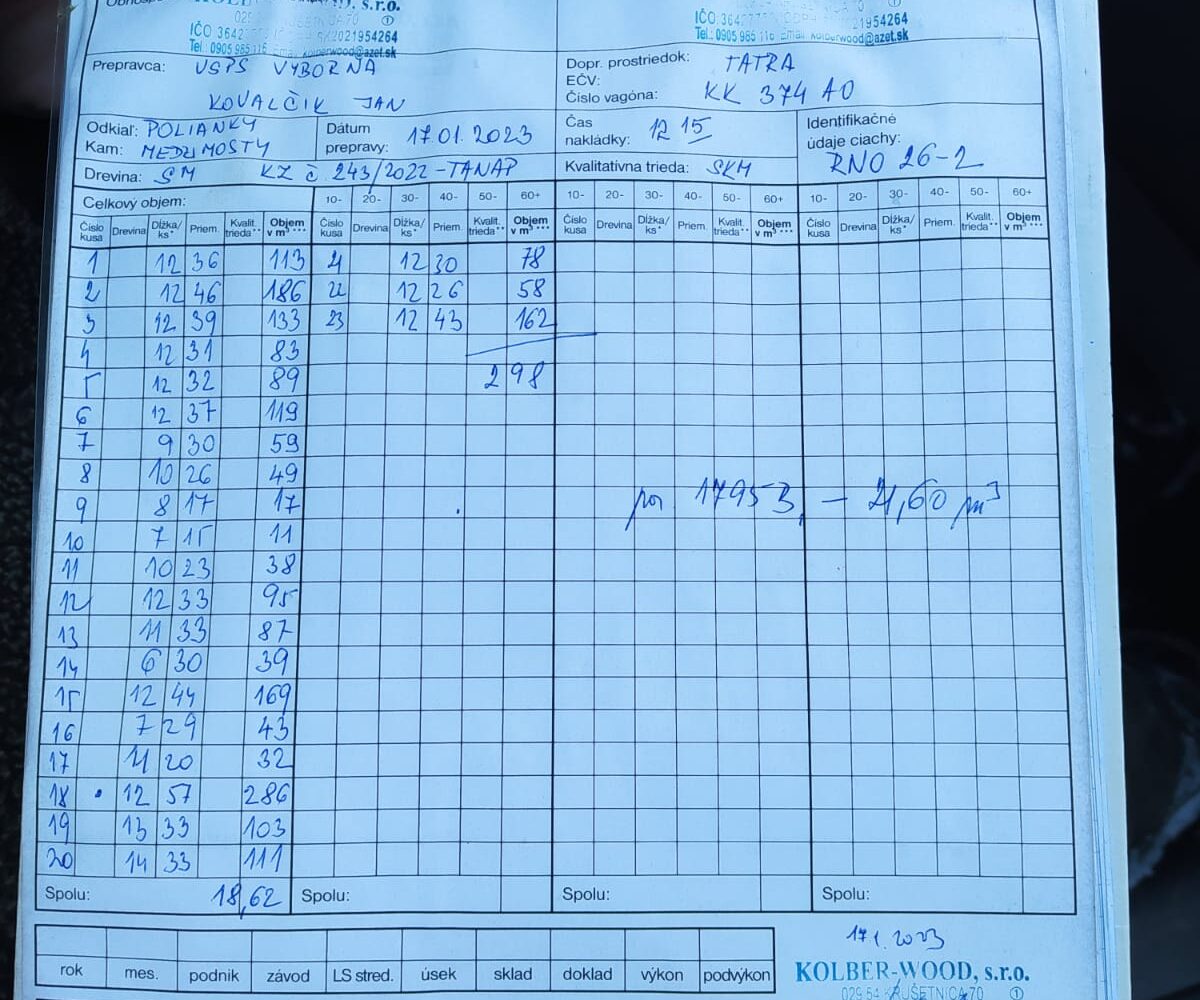 s.r.o.
IČO 3642 2021954264
Tel.: 0905 985 116 Email kolberwood@azet.sk
IČO 3642 21954264
Tel.: 0905 985 116 Email kolberwood@azet.sk
Prepravca: USPS VYBORNA
KOVALČIK JAN
Dopr. prostriedok: TATRA
EČV:
Číslo vagóna: KK 374 AO
Odkiaľ: POLIANKY
Kam: MEDZIMOSTY
Dátum prepravy: 17.01.2023
Čas nakládky: 12 15
Identifikačné údaje ciachy:
RNO 26-2
Drevina: SM KZ č 243/2022-TANAP
Kvalitatívna trieda: SKM
Celkový objem: 10- 20- 30- 40- 50- 60+ 10- 20- 30- 40- 50- 60+ 10- 20- 30- 40- 50- 60+
Číslo kusa Drevina Dĺžka/ks* Priem. Kvalit. trieda** Objem v m³*** Číslo kusa Drevina Dĺžka/ks* Priem. Kvalit. trieda** Objem v m³*** Číslo kusa Drevina Dĺžka/ks* Priem. Kvalit. trieda** Objem v m³*** Číslo kusa Drevina Dĺžka/ks* Priem. Kvalit. trieda** Objem v m³***
1 12 36 113 21 12 30 78
2 12 46 186 22 12 26 58
3 12 39 133 23 12 43 162
4 12 31 83
5 12 32 89 298
6 12 37 119
7 9 30 59
8 10 26 49
9 8 17 17 por. 17953 - 21,60 m³
10 7 15 11
11 10 23 38
12 12 33 95
13 11 33 87
14 6 30 39
15 12 44 169
16 7 29 43
17 11 20 32
18 12 57 286
19 13 33 103
20 14 33 111
Spolu: 18,62 Spolu: Spolu: Spolu:
17.1.2023
rok mes. podnik závod LS stred. úsek sklad doklad výkon podvýkon
KOLBER-WOOD, s.r.o.
029 54 KRUŠETNICA 70 ①